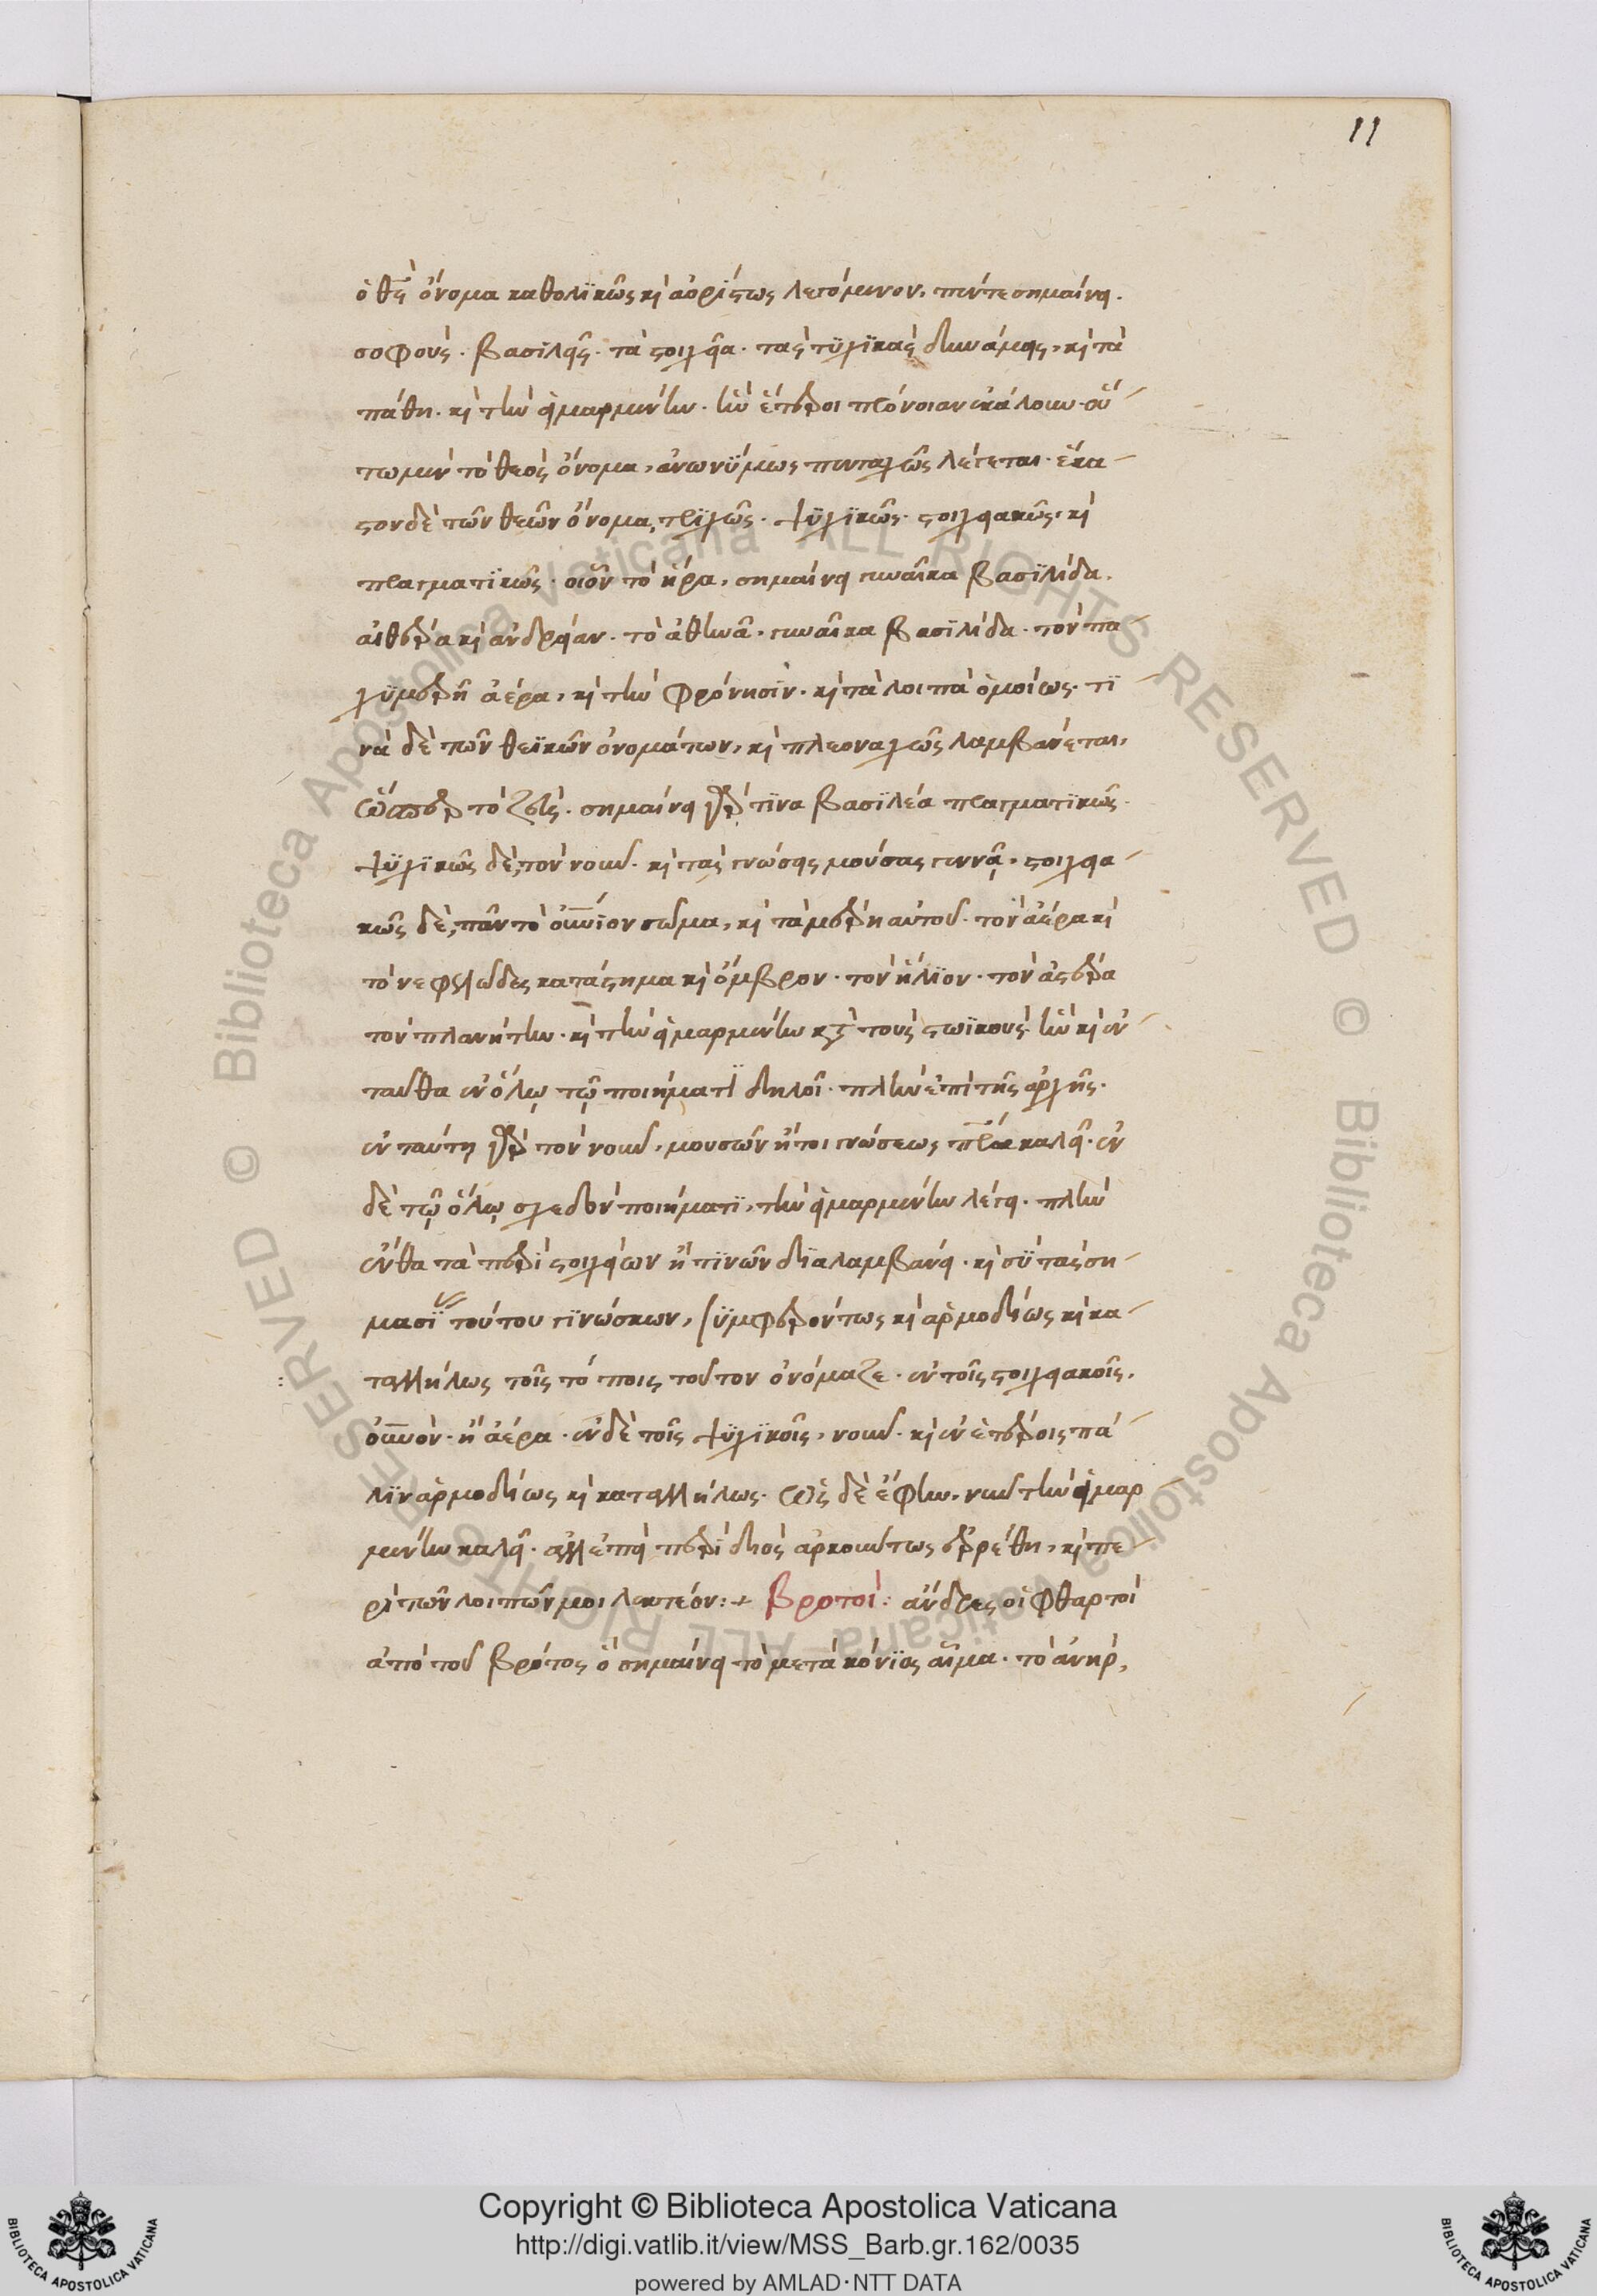 11
ὁ θς̅ ὄνομα καθολϊκῶς κὶ ἀορίστως λεγόμενον, πέντε σημαίνει.
σοφοὺς. βασϊλεῖς. τὰ στοιχεῖα. τὰς τϋχϊκὰς δυνάμεις, κὶ τὰ
πάθη. κὶ τὴν εἱμαρμένην. ἣν ἕτεροι πρόνοιαν ἐκάλουν. οὕ
τω μὲν τὸ θεὸς ὄνομα, ἀνωνΰμως πενταχῶς λέγεται. ἕκα
στον δὲ τῶν θεῶν ὄνομα, τρϊχῶς. ψϋχϊκῶς. στοιχειακῶς. κὶ
πραγματϊκῶς. οἷον τὸ ἥρα, σημαίνει γυναῖκα βασϊλίδα.
αἰθέρα κὶ ἀνδρείαν. τὸ ἀθηνᾶ. γυναῖκα βασϊλίδα. τὸν πα
χϋμερῆ ἀέρα, κὶ τὴν φρόνησϊν. κὶ τὰ λοιπὰ ὁμοίως. τϊ
νὰ δὲ τῶν θεϊκῶν ὀνομάτων, κὶ πλεοναχῶς λαμβάνεται,
ὥσπερ τὸ ζεὺς. σημαίνει γάρ τϊνα βασϊλέα πραγματϊκῶς.
ψϋχϊκῶς δὲ, τὸν νοῦν. κὶ τὰς γνώσεις μούσας γεννᾷ. στοιχεια
κῶς δὲ, πᾶν τὸ οὐνϊον σῶμα, κὶ τὰ μέρη αὐτοῦ. τὸν ἀέρα κὶ
τὸ νεφελῶδες κατάστημα κὶ ὄμβρον. τὸν ἥλϊον. τὸν ἀστέρα
τὸν πλανήτην. κὶ τὴν εἱμαρμένην κτ̀ τοὺς στωϊκούς. ἣν κὶ ἐν
ταῦθα ἐν ὅλῳ τῷ ποιήματϊ δηλοῖ. πλὴν ἐπὶ τῆς ἀρχῆς.
ἐν ταύτη γὰρ τὸν νοῦν, μουσῶν ἤτοι γνώσεως πρ̅α καλεῖ. ἐν
δὲ τῷ ὅλῳ σχεδὸν ποιήματϊ, τὴν εἱμαρμένην λέγει. πλὴν
ἔνθα τὰ περὶ στοιχείων ἤ τϊνῶν δϊαλαμβάνει. κὶ σῢ τὰς ση
μασΐ τούτου γϊνώσκων, σϋμφερόντως κὶ ἁρμοδίως κὶ κα
ταλλήλως τοῖς τόποις τοῦτον ὀνόμαζε. ἐν τοῖς στοιχειακοῖς,
οὐνὸν. ἢ ἀέρα. ἐν δὲ τοῖς ψϋχϊκοῖς, νοῦν. κὶ ἐν ἑτέροις πά
λϊν ἁρμοδίως κὶ καταλλήλως. ὡς δὲ ἔφην, νῦν τὴν εἱμαρ
μένην καλεῖ. ἀλλ ἐπεὶ περὶ δϊὸς ἀρκούντως ἐρρέθη, κὶ πε
ρὶ τῶν λοιπῶν μοι λεκτέον:+ βροτοὶ: ἄνδρες οἱ φθαρτοὶ
ἀπὸ τοῦ βρότος ὃ σημαίνει τὸ μετὰ κόνϊος αἷμα. τὸ ἀνὴρ,
Copyright © Biblioteca Apostolica Vaticana
http://digi.vatlib.it/view/MSS_Barb.gr.162/0035
powered by AMLAD·NTT DATA